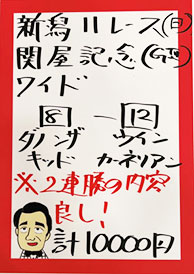 新潟11レース(日)
関屋記念(GⅢ)
ワイド
8 — 12
ダノンザ ウイン
キッド カーネリアン
※2連勝の内容
良し!
計10000円